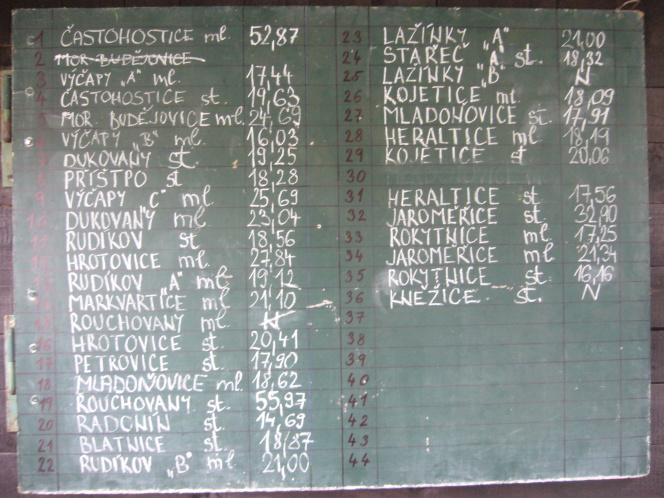 1 ČASTOHOSTICE ml. 52,87
2 MOR. BUDĚJOVICE
3 VÝČAPY "A" ml. 17,44
4 ČASTOHOSTICE st. 19,63
5 MOR. BUDĚJOVICE ml. 24,69
VÝČAPY "B" ml. 16,03
7 DUKOVANY st. 19,25
8 PŘÍŠTPO st 18,28
9 VÝČAPY "C" ml 25,69
10 DUKOVANY ml 23,04
11 RUDÍKOV st 18,56
HROTOVICE ml. 27,84
13 RUDÍKOV "A" ml 19,12
14 MARKVARTICE ml 21,10
15 ROUCHOVANY ml. N
16 HROTOVICE st. 20,41
17 PETROVICE st. 17,90
18 MLADOŇOVICE ml. 18,62
19 ROUCHOVANY st. 55,97
20 RADONÍN st. 14,69
21 BLATNICE st. 18,87
22 RUDÍKOV "B" ml 21,00
23 LAŽÍNKY "A" 21,00
24 STAŘEČ "A" st. 18,32
25 LAŽÍNKY "B" N
26 KOJETICE ml. 18,09
27 MLADOŇOVICE st. 17,91
28 HERALTICE ml 18,19
29 KOJETICE st 20,06
30
31 HERALTICE st 17,56
32 JAROMĚŘICE st 32,90
33 ROKYTNICE ml 17,25
34 JAROMĚŘICE ml 21,34
35 ROKYTNICE st. 16,16
36 KNĚŽICE st. N
37
38
39
40
41
42
43
44